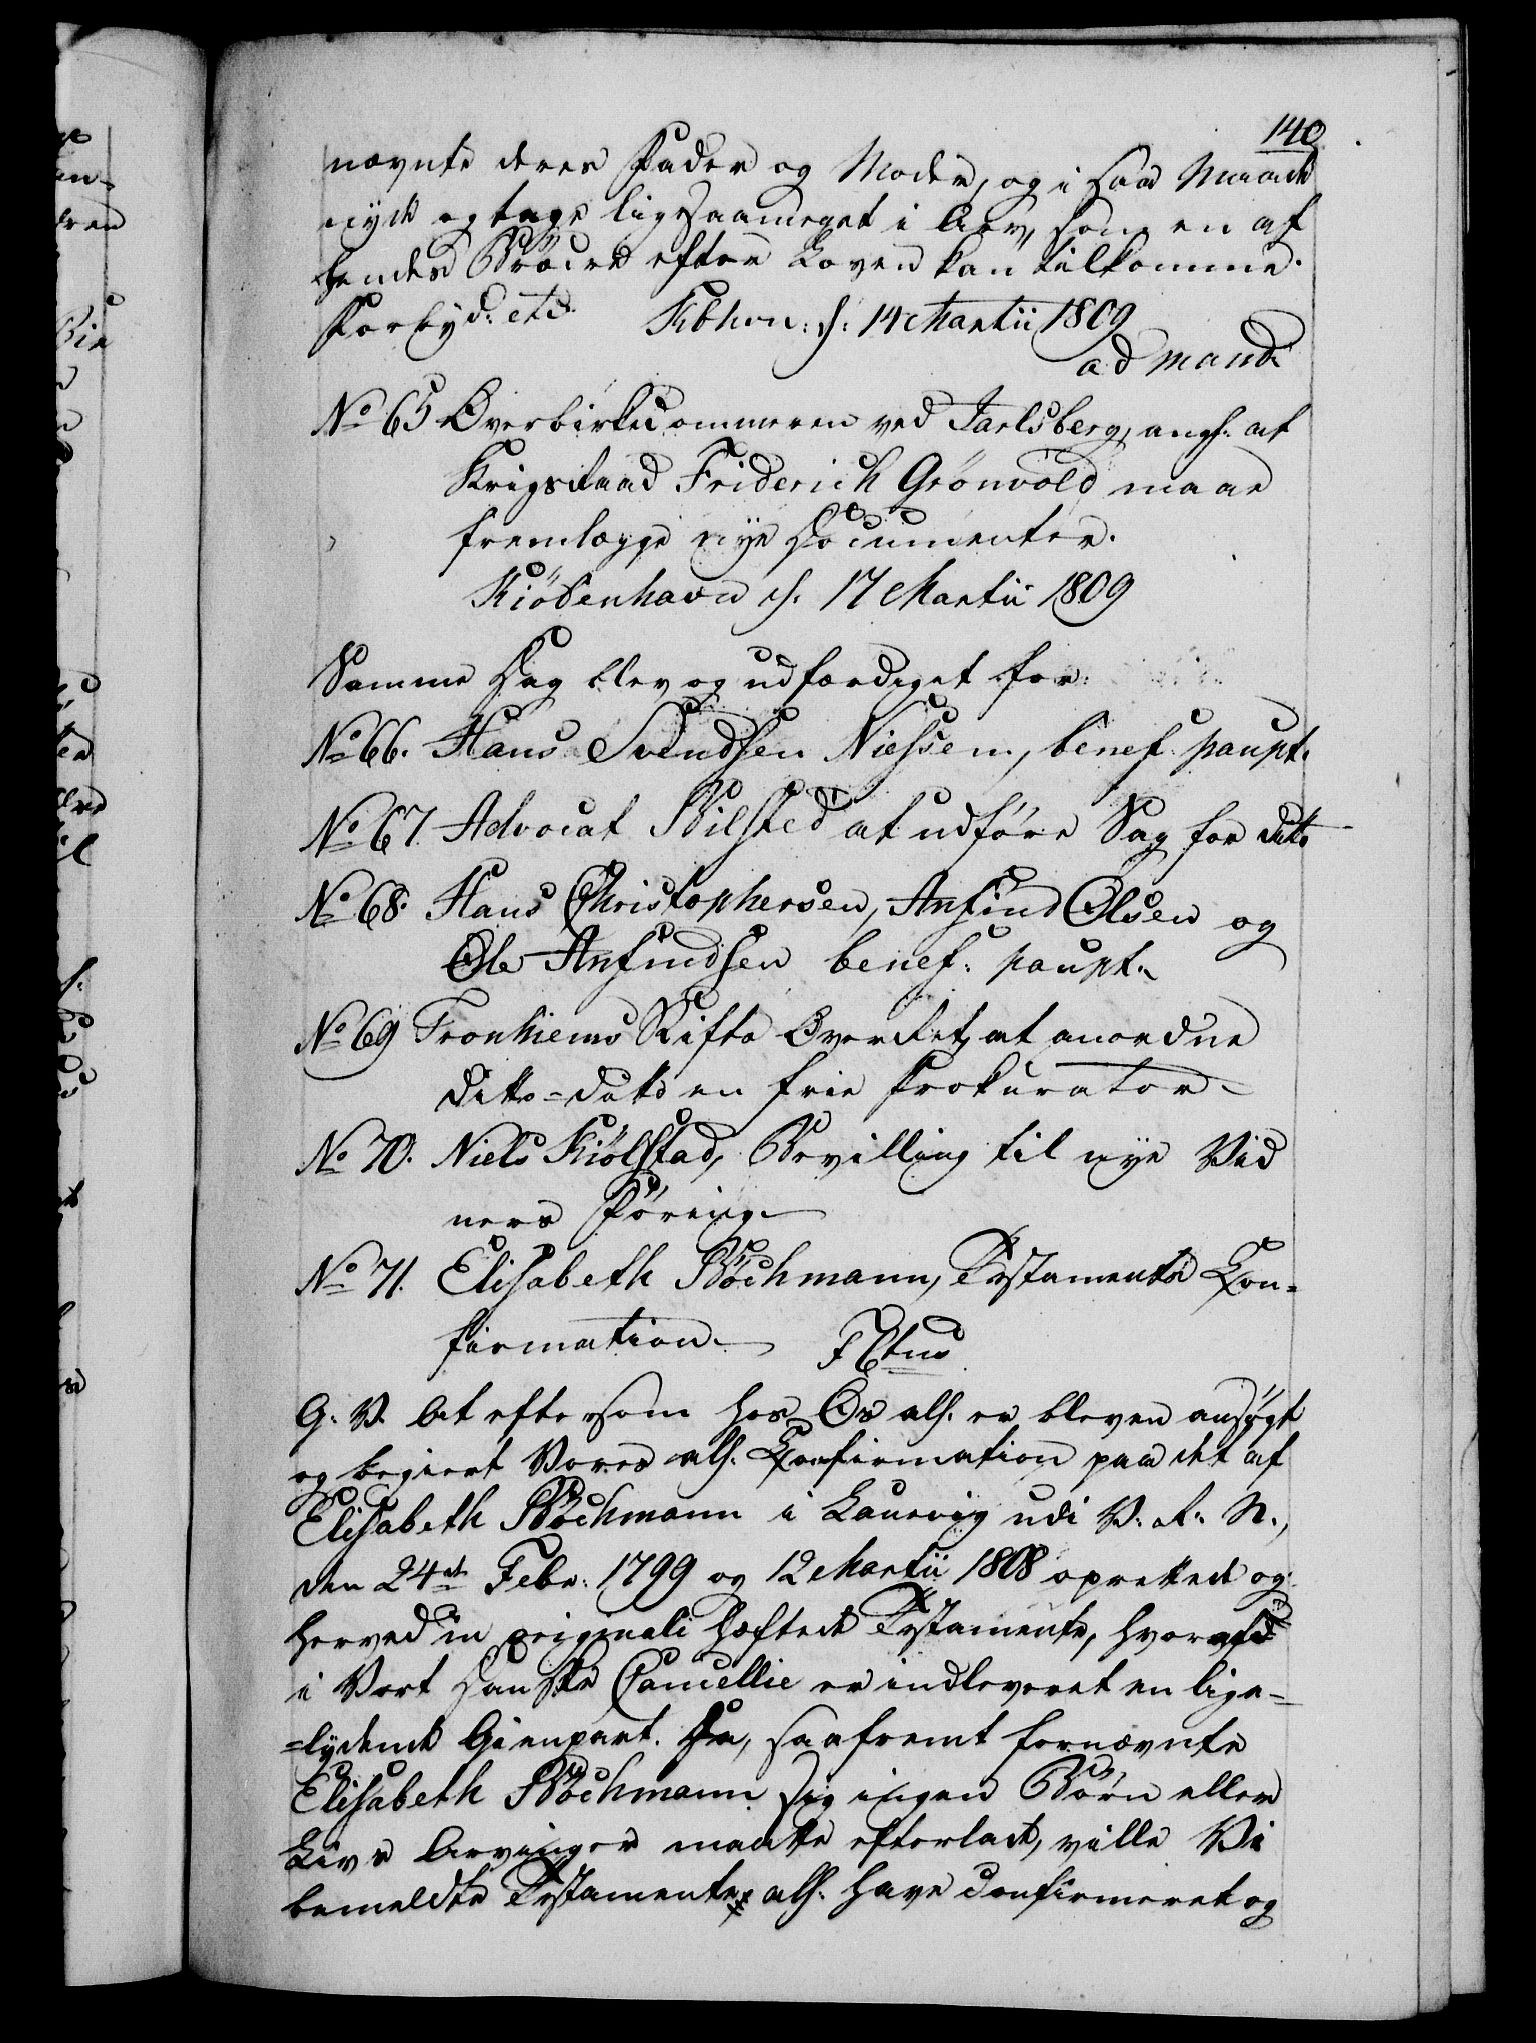 140
nævnte deres Fader og Moder, og i saa Maade
nyde og tage ligesaameget i Arv, som en af
hendes Brødre efter Loven kan tilkomme.
Forbyd: etc. Kbhvn: d: 14 Martii 1809
ad mand:
No 65 Overbirkedommeren ved Jarlsberg, angl. at
Krigsraad Friderich Grönvold maae
fremlægge nye Documenter.
Kiöbenhavn d. 17 Martii 1809
Samme Dag blev og udfærdiget for:
No 66. Hans Svendsen Nielsen, benef: paupt.
No 67. Advocat Bilsted at udföre Sag for ditto
No 68. Hans Christophersen, Anfind Olsen og
Ole Anfindsen benef: paupt.
No 69 Tronhiems Stifts Overret, at anordne
ditto-ditto en frie Prokurator
No 70. Niels Kiölstad, Bevilling til nye Vid
ners Föring
No 71. Elisabeth Böchmann, Testaments Con-
firmation. F Ctus
G. V. At eftersom hos Os all. er bleven ansøgt
og begiert Vores all. Confirmation paa det af
Elisabeth Böchmann i Laurvig udi V. R. N.,
den 24de Febr: 1799 og 12 Martii 1808 oprettede og
herved in originali hæftede Testamente, hvoraf
i Vort Danske Cancellie er indleveret en lige-
=lydende Gienpart. Da, saafremt fornævnte
Elisabeth Böchmann sig ingen Börn eller
Livs Arvinger maatte efterlade, ville Vi
bemeldte Testamente all. have confirmeret og